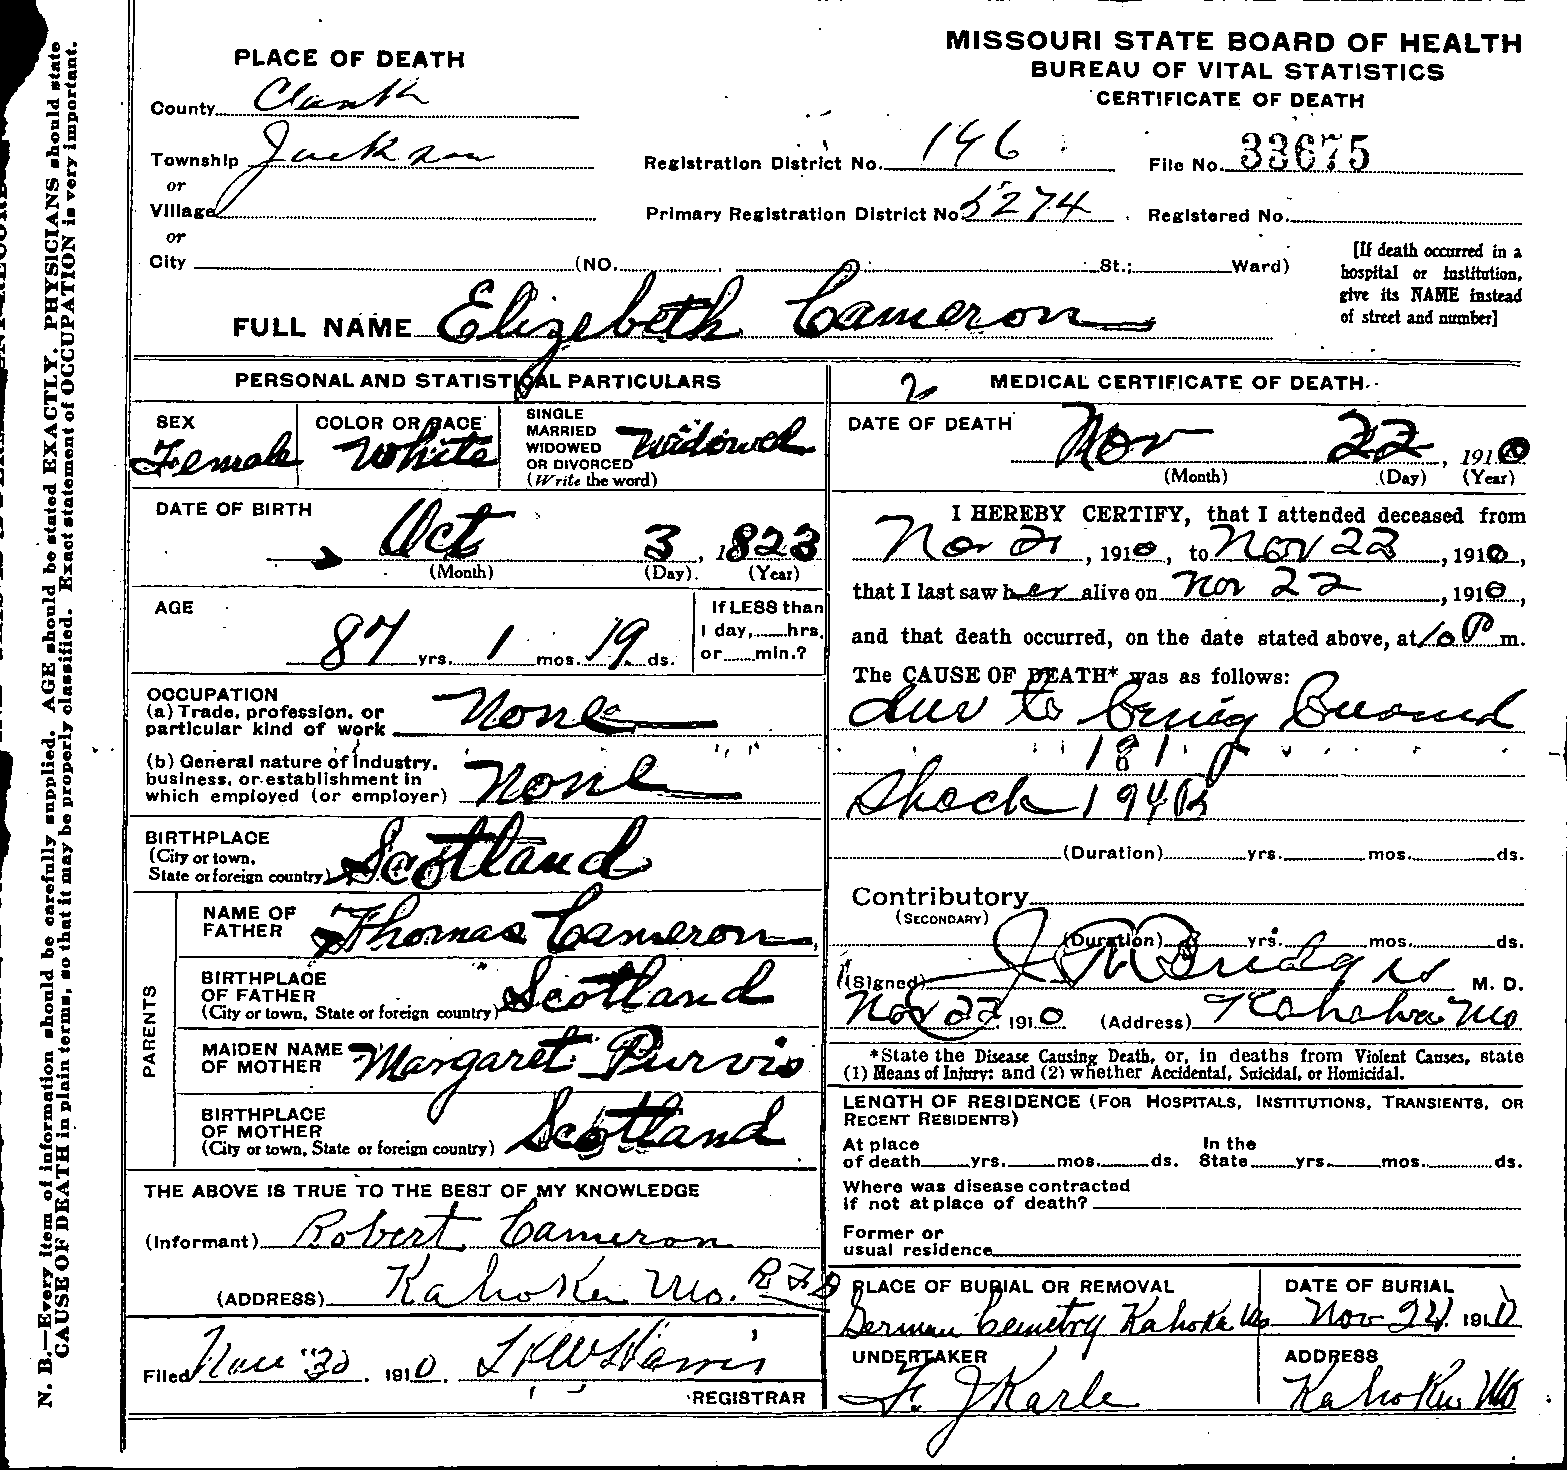 MISSOURI STATE BOARD OF HEALTH
BUREAU OF VITAL STATISTICS
CERTIFICATE OF DEATH
PLACE OF DEATH
County Clark
Township Jackson
or
Village
or
City (NO. St.; Ward)
Registration District No. 146
File No. 33675
Primary Registration District No. 5274
Registered No.
[If death occurred in a
hospital or institution,
give its NAME instead
of street and number]
FULL NAME Elizebeth Cameron
PERSONAL AND STATISTICAL PARTICULARS
SEX
Female
COLOR OR RACE
White
SINGLE
MARRIED
WIDOWED
OR DIVORCED
(Write the word)
Widowed
DATE OF BIRTH
Oct 3, 1823
(Month) (Day) (Year)
AGE
87 yrs. 1 mos. 19 ds.
If LESS than
1 day, hrs.
or min.?
OCCUPATION
(a) Trade, profession, or
particular kind of work None
(b) General nature of industry,
business, or establishment in
which employed (or employer) None
BIRTHPLACE
(City or town,
State or foreign country) Scotland
PARENTS
NAME OF
FATHER Thomas Cameron
BIRTHPLACE
OF FATHER
(City or town, State or foreign country) Scotland
MAIDEN NAME
OF MOTHER Margaret Purvis
BIRTHPLACE
OF MOTHER
(City or town, State or foreign country) Scotland
THE ABOVE IS TRUE TO THE BEST OF MY KNOWLEDGE
(Informant) Robert Cameron
(ADDRESS) Kahoka Mo. RFD
Filed Nov 30, 1910. Harris
REGISTRAR
2 MEDICAL CERTIFICATE OF DEATH
DATE OF DEATH
Nov 22, 1910
(Month) (Day) (Year)
I HEREBY CERTIFY, that I attended deceased from
Nov 21, 1910, to Nov 22, 1910,
that I last saw her alive on Nov 22, 1910,
and that death occurred, on the date stated above, at 10 P m.
The CAUSE OF DEATH* was as follows:
due to being Burned
181
Shock 194B
(Duration) yrs. mos. ds.
Contributory
(SECONDARY)
(Duration) yrs. mos. ds.
(Signed) J M Bridges M. D.
Nov 22, 1910. (Address) Kahoka Mo
*State the Disease Causing Death, or, in deaths from Violent Causes, state
(1) Means of Injury; and (2) whether Accidental, Suicidal, or Homicidal.
LENGTH OF RESIDENCE (FOR HOSPITALS, INSTITUTIONS, TRANSIENTS, OR
RECENT RESIDENTS)
At place
of death yrs. mos. ds.
In the
State yrs. mos. ds.
Where was disease contracted
if not at place of death?
Former or
usual residence
PLACE OF BURIAL OR REMOVAL
German Cemetry Kahoka Mo
DATE OF BURIAL
Nov 24, 1910
UNDERTAKER
F. J Karle
ADDRESS
Kahoka Mo
N. B.—Every item of information should be carefully supplied. AGE should be stated EXACTLY. PHYSICIANS should state
CAUSE OF DEATH in plain terms, so that it may be properly classified. Exact statement of OCCUPATION is very important.